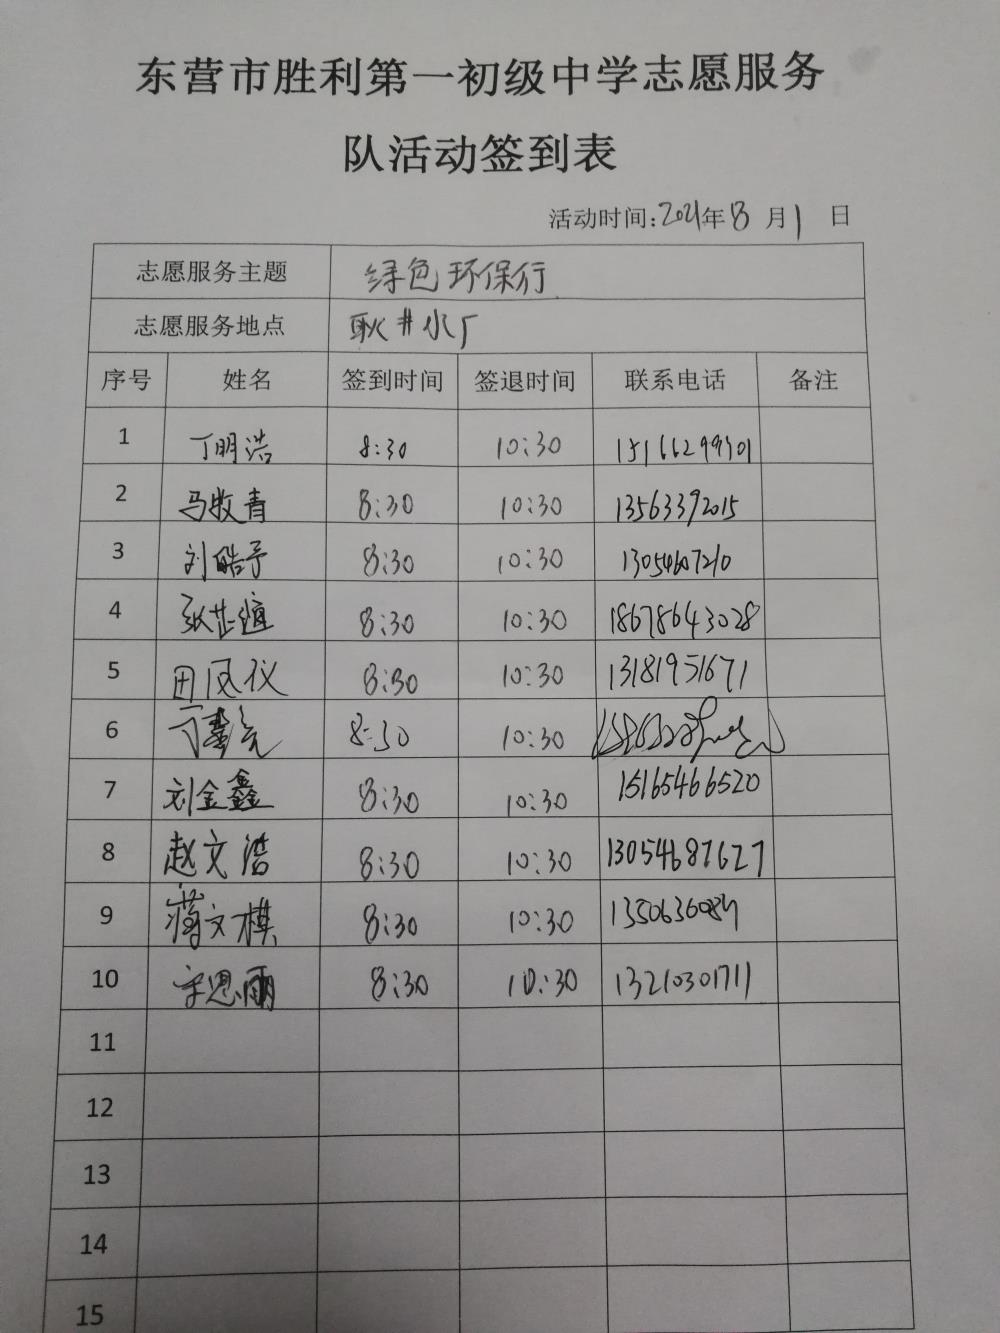 东营市胜利第一初级中学志愿服务
队活动签到表
活动时间:2021年8月1日
志愿服务主题 绿色环保行
志愿服务地点 耿井水厂
序号 姓名 签到时间 签退时间 联系电话 备注
1 丁明浩 8:30 10:30 15166299301
2 马牧青 8:30 10:30 13563392015
3 刘皓予 8:30 10:30 13054607210
4 张芷谊 8:30 10:30 18678643028
5 田凤仪 8:30 10:30 13181951671
6 8:30 10:30
7 刘金鑫 8:30 10:30 15165466520
8 赵文浩 8:30 10:30 13054687627
9 蒋文棋 8:30 10:30
10 宋思雨 8:30 10:30 13210301711
11
12
13
14
15